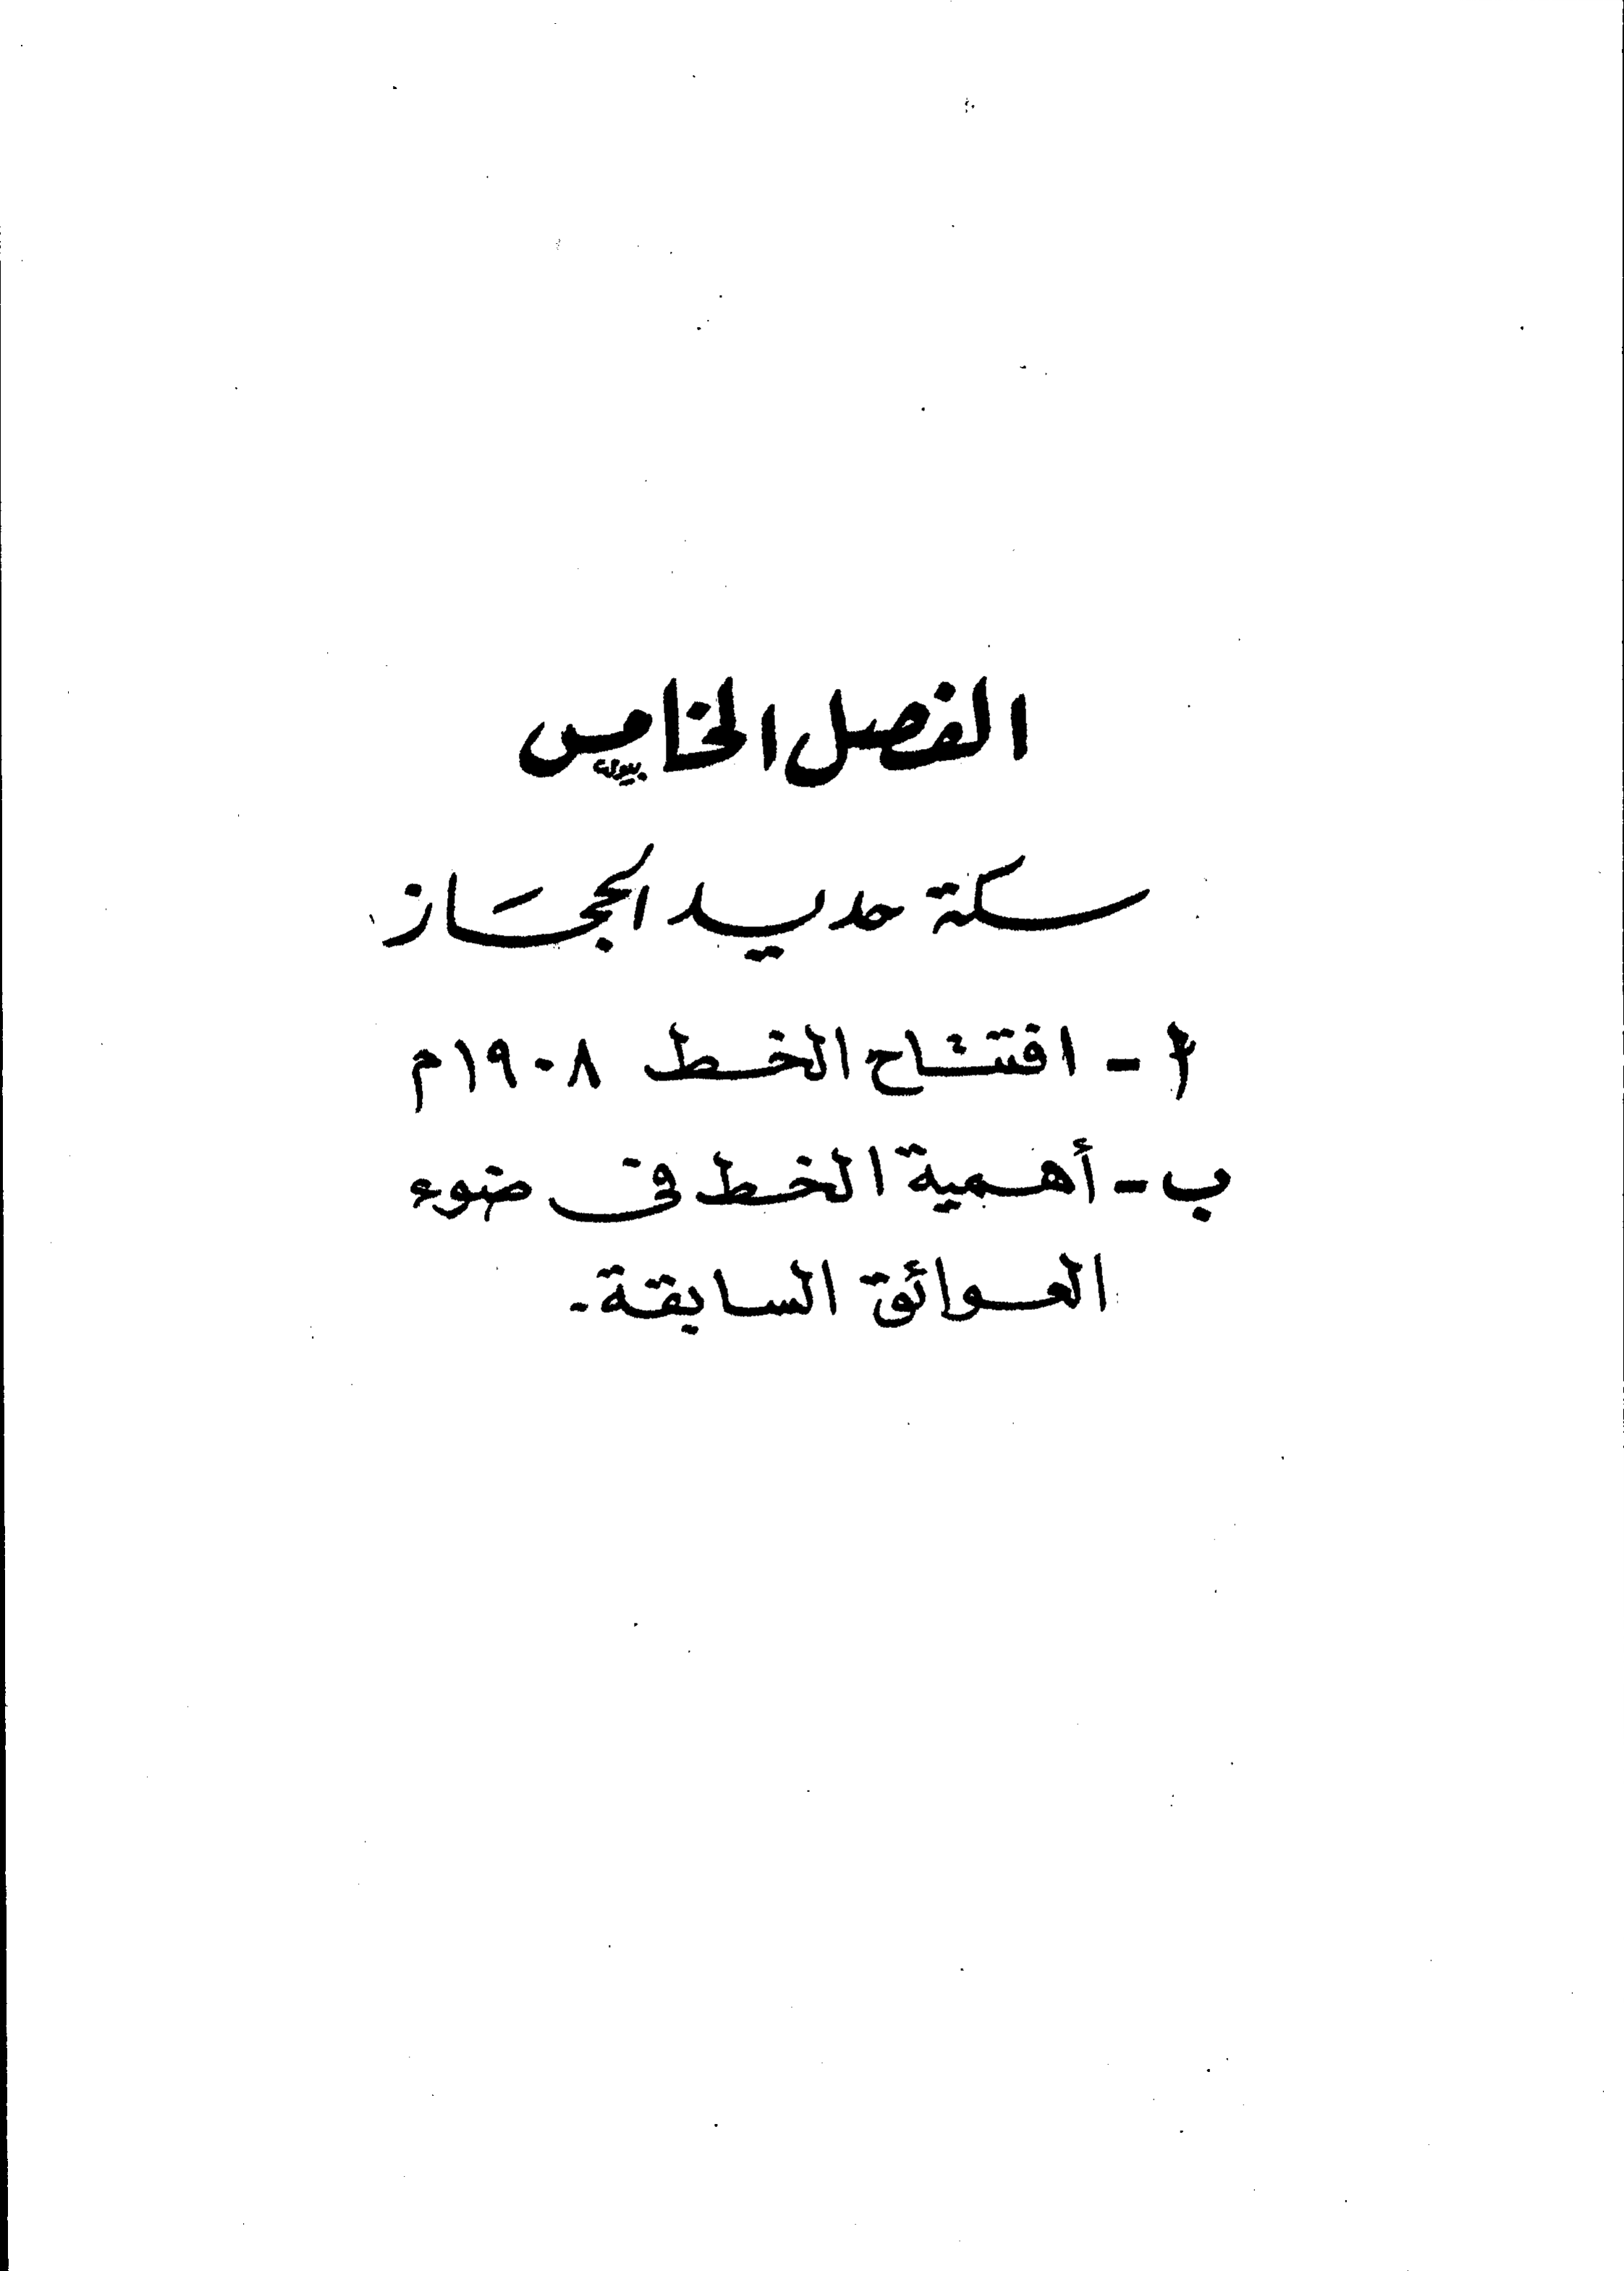 الفصل الخامس
سكة حديد الحجاز
أ - افتتاح الخط ١٩٠٨م
ب - أهمية الخط فى ضوء
العوائق السابقة.